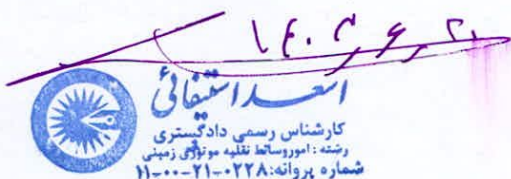 ۱۴۰۳٫۶٫۲۰
اسعد استیفائی
کارشناس رسمی دادگستری
رشته : امور وسائط نقلیه موتوری زمینی
شماره پروانه: ۱۱-۰۰-۲۱-۰۲۲۸